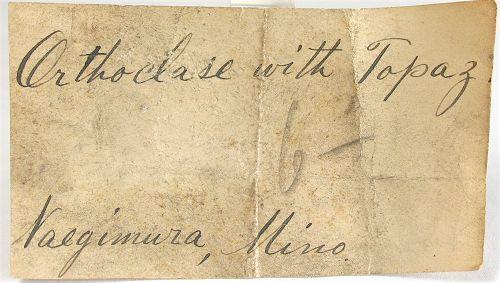 Orthoclase with Topaz.
6-
Naegimura, Mino.